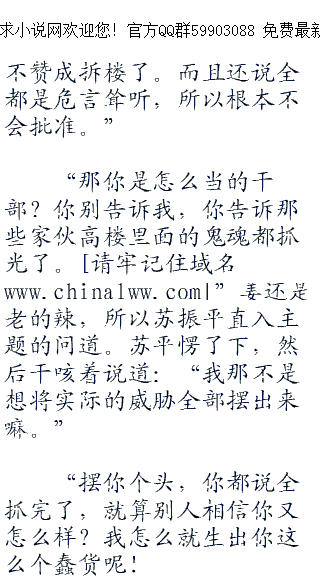 求小说网欢迎您！官方QQ群59903088 免费最新
不赞成拆楼了。而且还说全
都是危言耸听，所以根本不
会批准。”
“那你是怎么当的干
部？你别告诉我，你告诉那
些家伙高楼里面的鬼魂都抓
光了。[请牢记住域名
www.china1ww.com|”姜还是
老的辣，所以苏振平直入主
题的问道。苏平愣了下，然
后干咳着说道：“我那不是
想将实际的威胁全部摆出来
嘛。”
“摆你个头，你都说全
抓完了，就算别人相信你又
怎么样？我怎么就生出你这
么个蠢货呢！